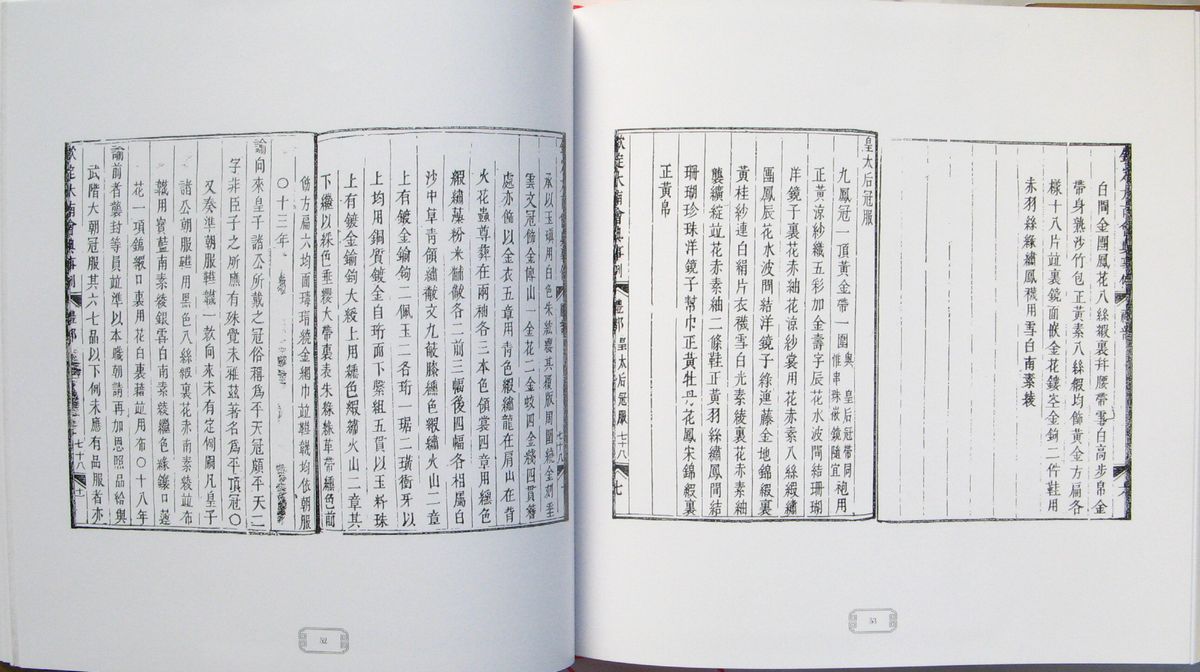 承以玉瑱用白色朱紘
雲文冠飾金俾山一金花二金蛟四金綫四貫簪
處亦飾以金衣五章用青色緞繡龍在肩山在背
火花蟲尊彝在兩袖各三本色領裳四章用纁色
緞繡藻粉米黼黻各二前三幅後四幅各相屬白
沙中草青領繡黻文九蔽膝纁色緞繡火山二章
上有鍍金鍮鉤二佩玉二各珩一琚二璜衝牙以
上均用銅質鍍金自珩而下繫組五貫以玉料珠
上有鍍金鍮鉤大綬上用纁色緞繡火山二章其
下繼以綵色垂纓大帶裏表朱綠革帶纁色前
傍方扁六均面瑇瑁繞金鞋襪均依朝服
〇十三年
諭向來皇子諸公所戴之冠俗稱爲平天冠頗平天二
字非臣子之所應有殊覺未雅茲著名爲平頂冠〇
又奏準朝服鞋襪一款向來未有定例關凡皇子
諸公朝服鞋用黑色八絲緞裏花赤南素綾竝布
襪用寶藍南素綾銀雪白南素綾纁色緣鏤口蓮
花一項錦緞口裏用花白裏藉竝用布〇十八年
諭前者襲封等員竝準以本職朝請再加恩照品給與
武階大朝冠服其六七品以下例未應有品服者亦
欽定大南會典事例 禮部 七十八 十一
52
白間金團鳳花八絲緞裏幷腰帶雪白高步帛金
帶身熟沙竹包正黃素八絲緞均飾黃金方扁各
樣十八片竝裏鏡面嵌金花鏤空金鉤二件鞋用
赤羽絲緣繡鳳襪用雪白南素綾
皇太后冠服
九鳳冠一頂黃金帶一圍與皇后冠帶同惟串珠嵌鏡隨宜袍用
正黃涼紗織五彩加金壽字辰花水波間結珊瑚
洋鏡子裏花赤紬花涼紗裳用花赤素八絲緞繡
團鳳辰花水波間結洋鏡子絛連藤金地錦緞裏
黃桂紗連白絹片衣襪雪白光素綾裏花赤素紬
襲纊綻竝花赤素紬二條鞋正黃羽絲繡鳳間結
珊瑚珍珠洋鏡子幫巾正黃牡丹花鳳宋錦緞裏
正黃帛
欽定大南會典事例 禮部 皇太后冠服 七十八 七
53